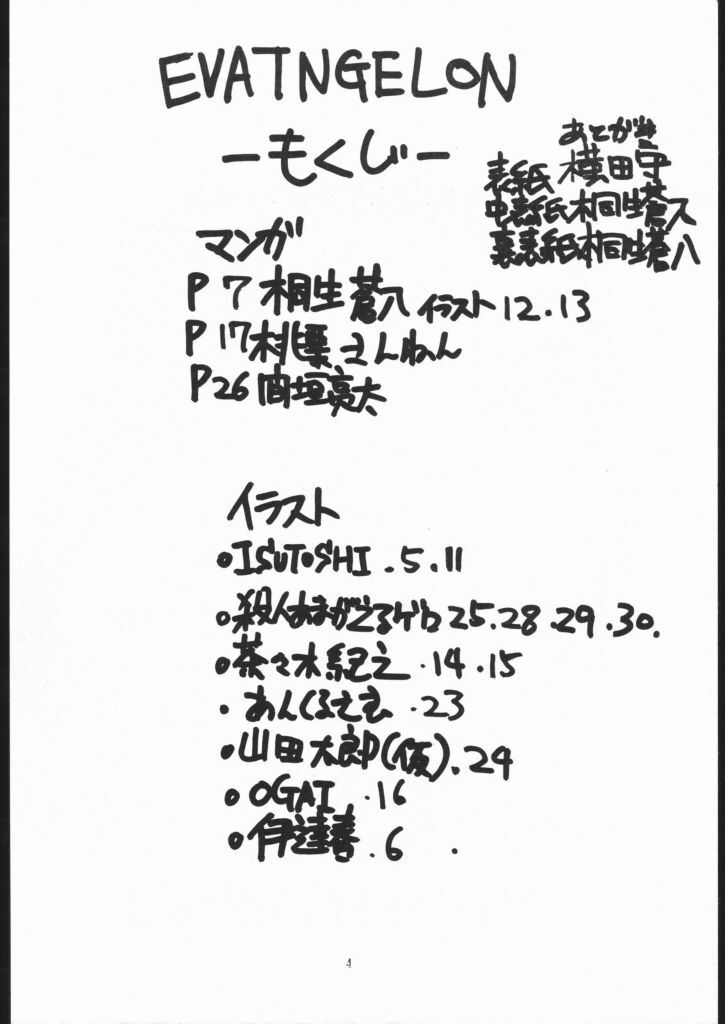 EVATNGELON
ーもくじー
あとがき
横田守
表紙
中表紙 桐生蒼八
裏表紙 桐生蒼八
マンガ
P7 桐生蒼八 イラスト12.13
P17 桃栗さんねん
P26 間垣亮太
イラスト
•ISUTOSHI.5.11
•殺人あまがえるゲロ25.28.29.30.
•茶々木紀之.14.15
•あんくる.23
•山田太郎(仮).24
•OGAI.16
•伊達善.6
4